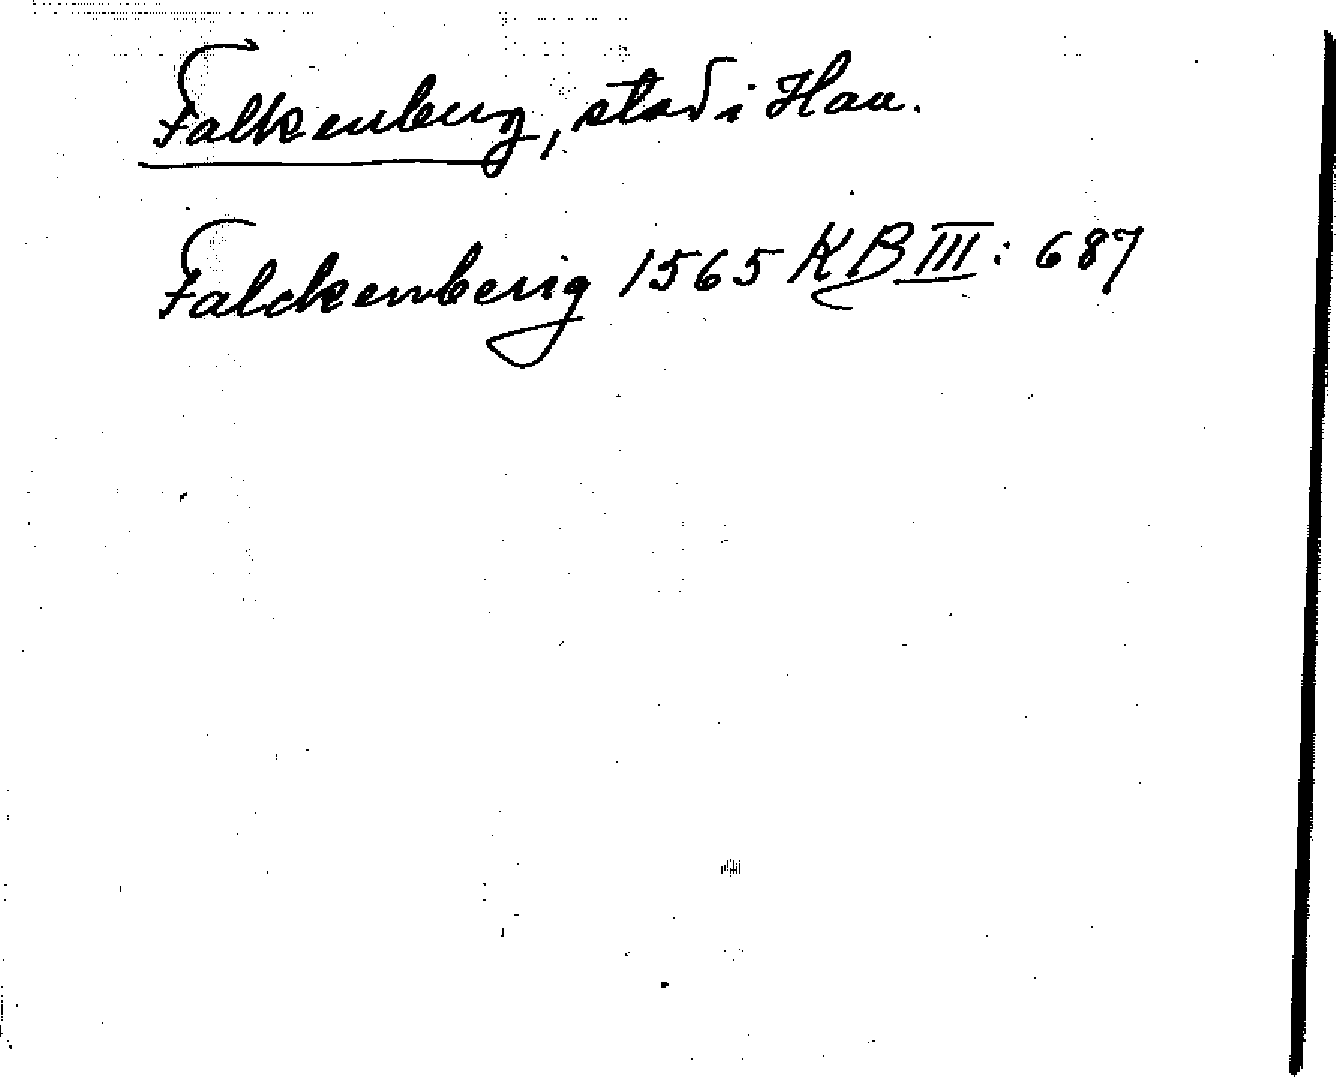 Falkenberg, stad i Haa.
Falckenberig 1565 KB III: 687